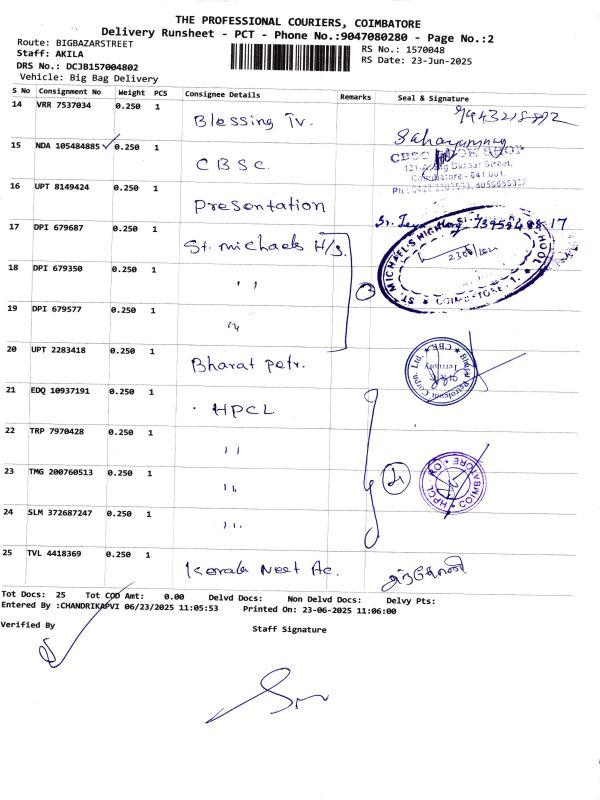 THE PROFESSIONAL COURIERS, COIMBATORE
Delivery Runsheet - PCT - Phone No.:9047080280 - Page No.:2
Route: BIGBAZARSTREET
RS No.: 1570048
Staff: AKILA
RS Date: 23-Jun-2025
DRS No.: DCJB157004802
Vehicle: Big Bag Delivery
S No Consignment No Weight PCS Consignee Details Remarks Seal & Signature
14 VRR 7537034 0.250 1 Blessing Tv.
15 NDA 105484885 0.250 1 CBSC.
CBSC BOOK SHOP
Coimbatore - 641 001.
16 UPT 8149424 0.250 1 Presentation
17 DPI 679687 0.250 1 St. michaels H/s.
18 DPI 679350 0.250 1 ,,
19 DPI 679577 0.250 1 ,,
3
ST. MICHAEL'S HIGHER SCHOOL
COIMBATORE - 1.
20 UPT 2283418 0.250 1 Bharat petr.
Bharat Petroleum Corpn. Ltd. CBE
Territory
21 EDQ 10937191 0.250 1 HPCL
22 TRP 7970428 0.250 1 ,,
23 TMG 200760513 0.250 1 ,,
24 SLM 372687247 0.250 1 ,,
4
HPCL COIMBATORE
25 TVL 4418369 0.250 1 Kerala Neet Ac.
Tot Docs: 25 Tot COD Amt: 0.00 Delvd Docs: Non Delvd Docs: Delvy Pts:
Entered By :CHANDRIKAPVI 06/23/2025 11:05:53 Printed On: 23-06-2025 11:06:00
Verified By
Staff Signature